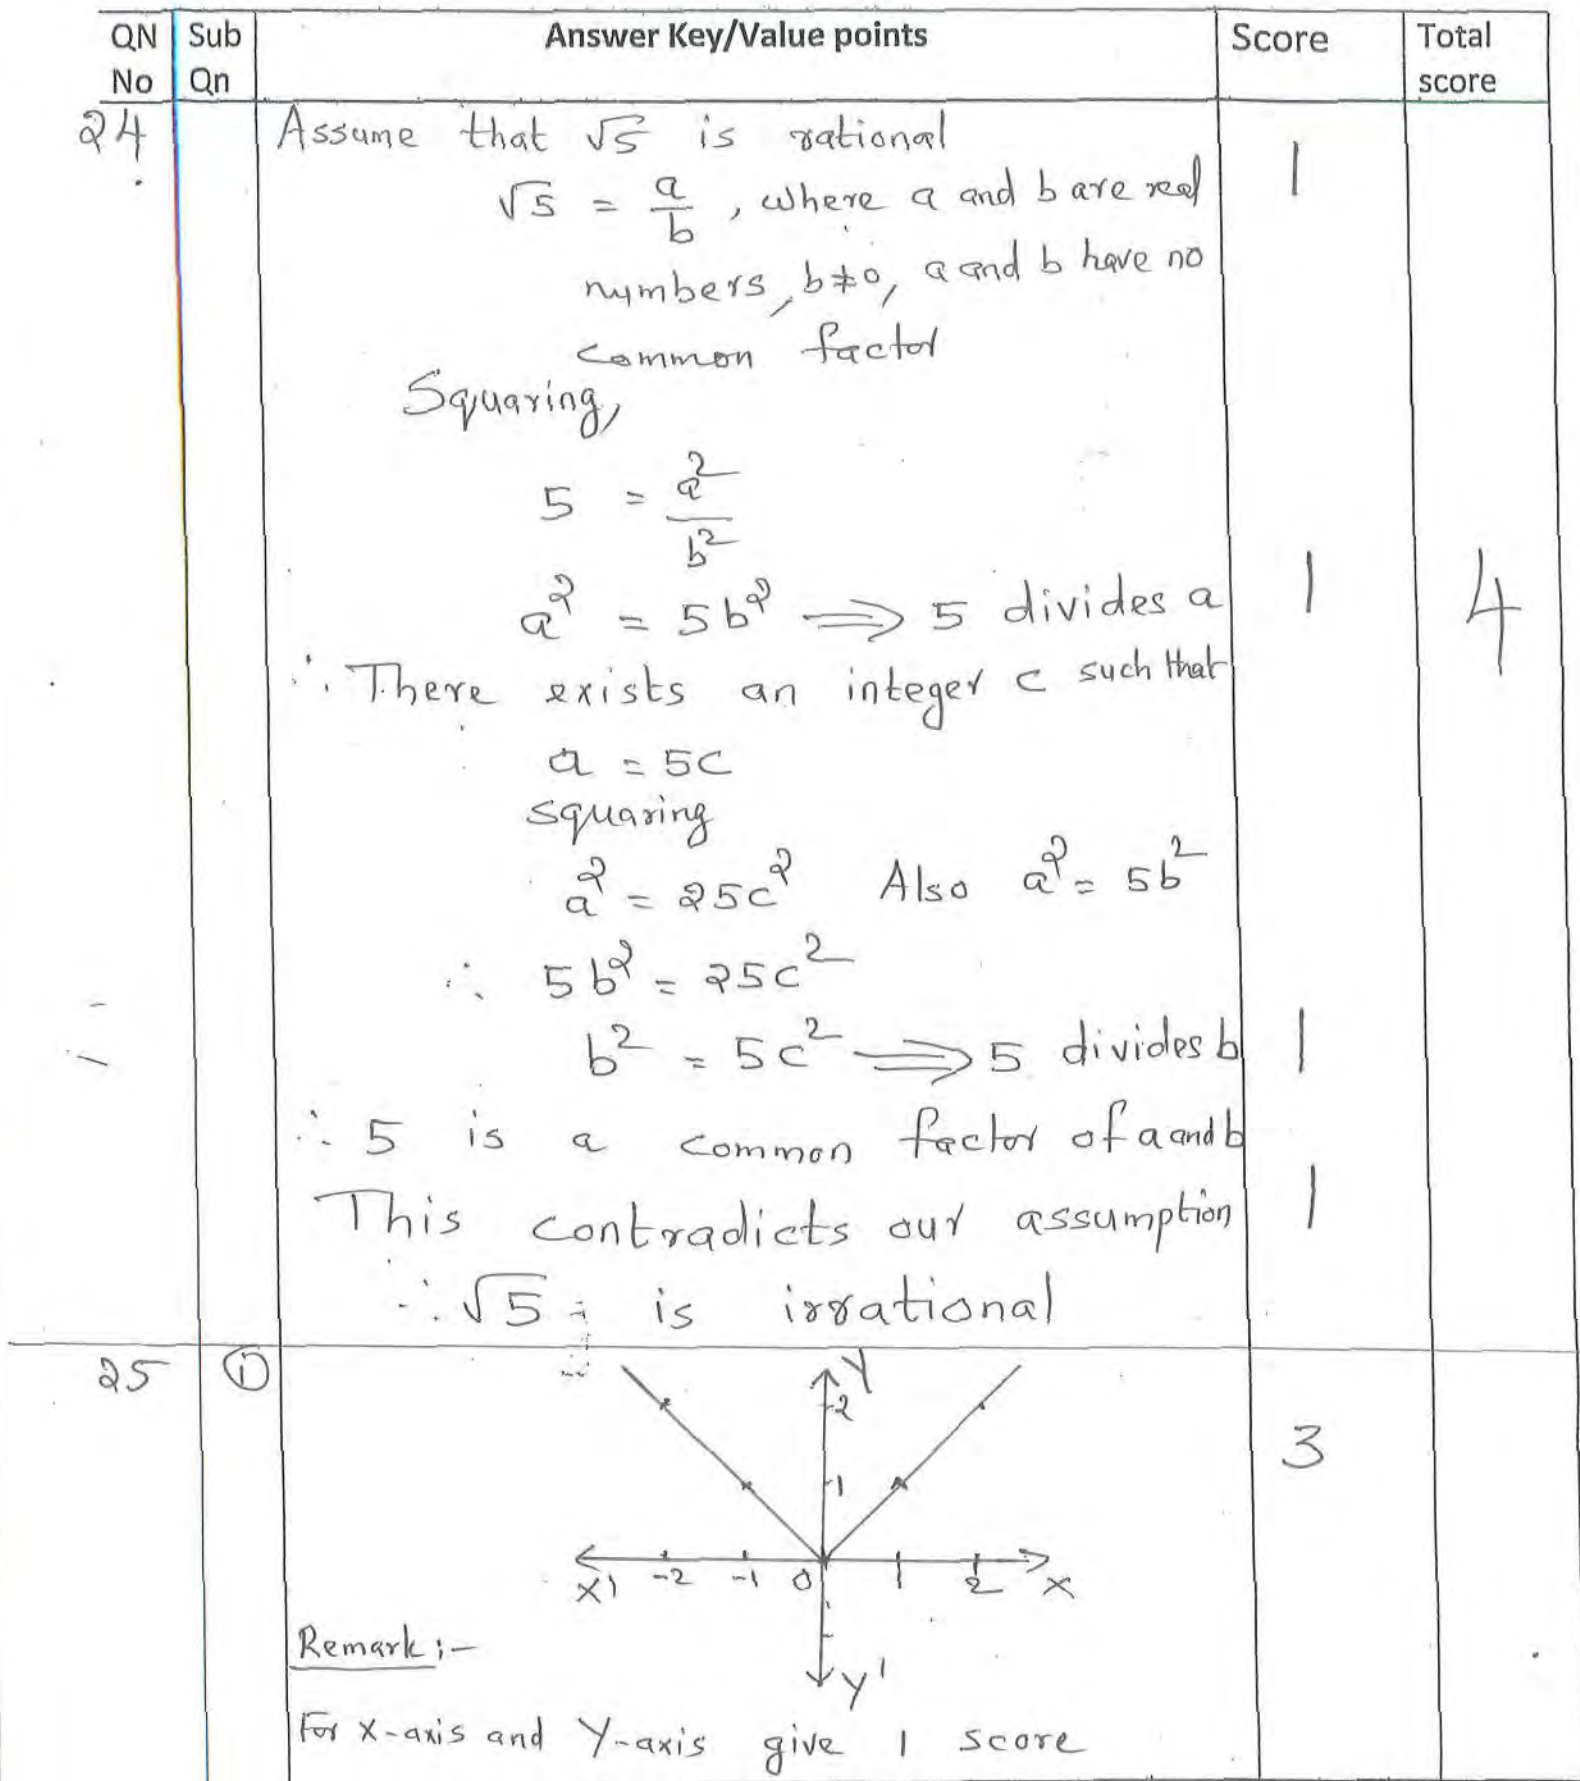 QN No | Sub Qn | Answer Key/Value points | Score | Total score
24 Assume that √5 is rational
√5 = a/b, where a and b are real 1
numbers, b≠0, a and b have no
common factor
Squaring,
5 = a²/b²
a² = 5b² ⟹ 5 divides a 1 4
∴ There exists an integer c such that
a = 5c
squaring
a² = 25c² Also a² = 5b²
∴ 5b² = 25c²
b² = 5c² ⟹ 5 divides b 1
∴ 5 is a common factor of a and b
This contradicts our assumption 1
∴ √5 is irrational
25 ① Y
2 3
1
X' -2 -1 0 1 2 X
Remark :-
Y'
For X-axis and Y-axis give 1 score